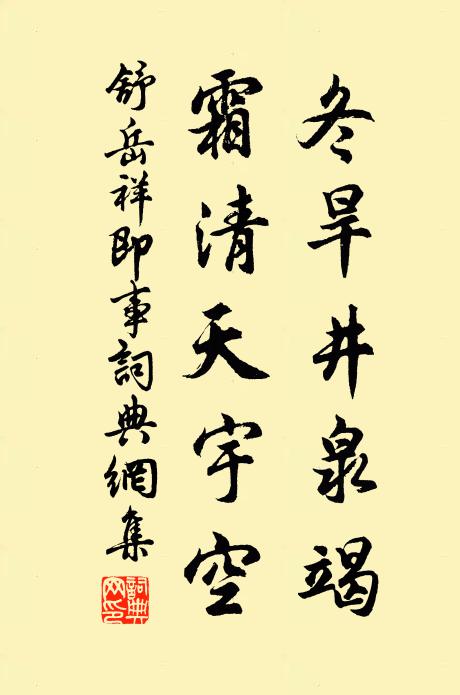 冬旱井泉竭
霜清天宇空
舒岳祥即事詞典網集
詞典網印